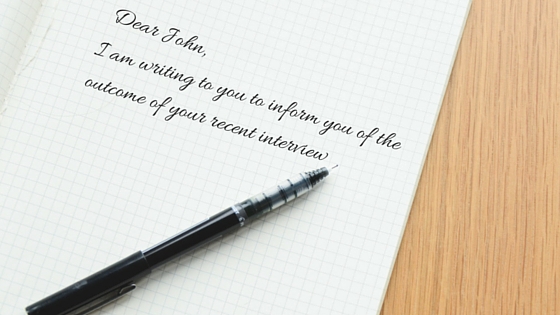 Dear John,
I am writing to you to inform you of the
outcome of your recent interview